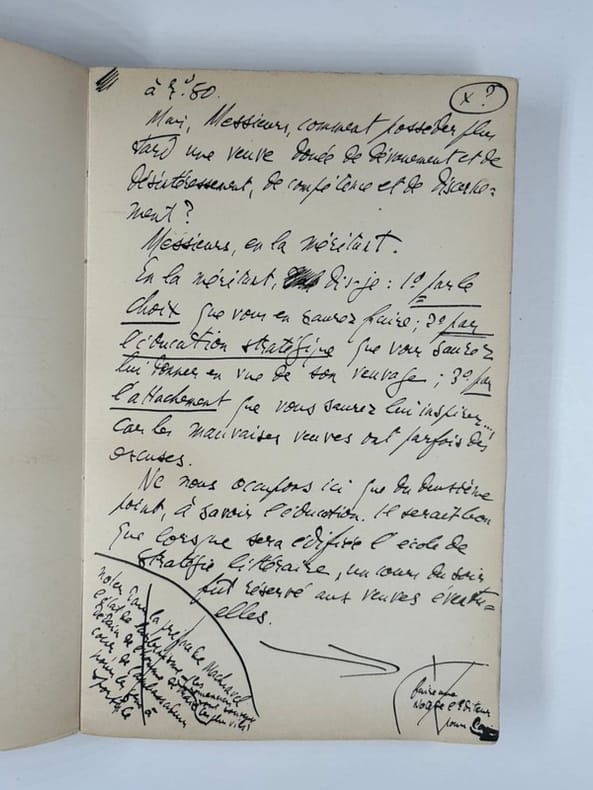 à 7.50.
x ?
Mais, Messieurs, comment posséder plus
tard une veuve douée de dévouement et de
désintéressement, de compétence et de discerne-
ment ?
Messieurs, en la méritant.
En la méritant, dis-je : 1º par le
choix que vous en saurez faire ; 2º par
l'éducation stratégique que vous saurez
lui donner en vue de son veuvage ; 3º par
l'attachement que vous saurez lui inspirer...
car les mauvaises veuves ont parfois des
excuses.
Ne nous occupons ici que du deuxième
point, à savoir l'éducation. Il serait bon
que lorsque sera édifiée l'école de
stratégie littéraire, un cours du soir
fût réservé aux veuves éventu-
elles.
noter dans la préface de
l'état de
de
cour, de l'ambassadeur
pour
faire une
Note d'éditeur
pour